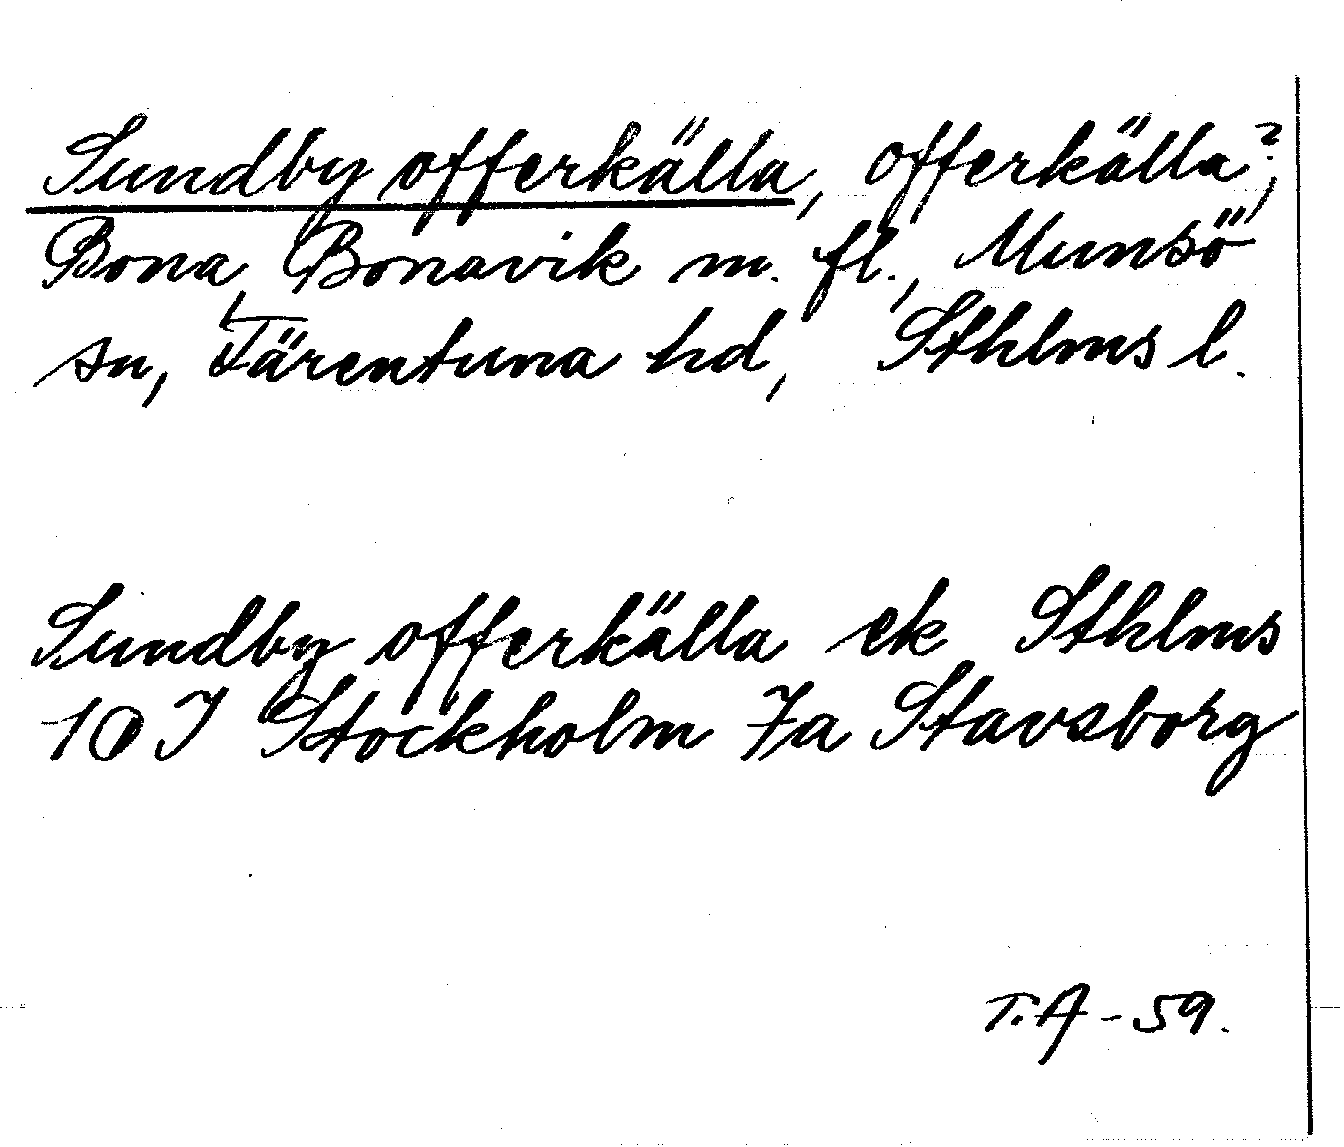 Sundby offerkälla, offerkälla?,
Bona, Bonavik m. fl., Munsö
sn, Färentuna hd, Sthlms l.
Sundby offerkälla ek Sthlms
10 I Stockholm 7a Stavsborg
T.A - 59.